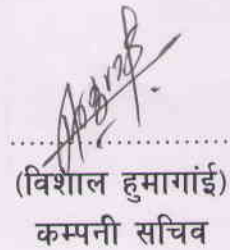 (विशाल हुमागांई)
कम्पनी सचिव